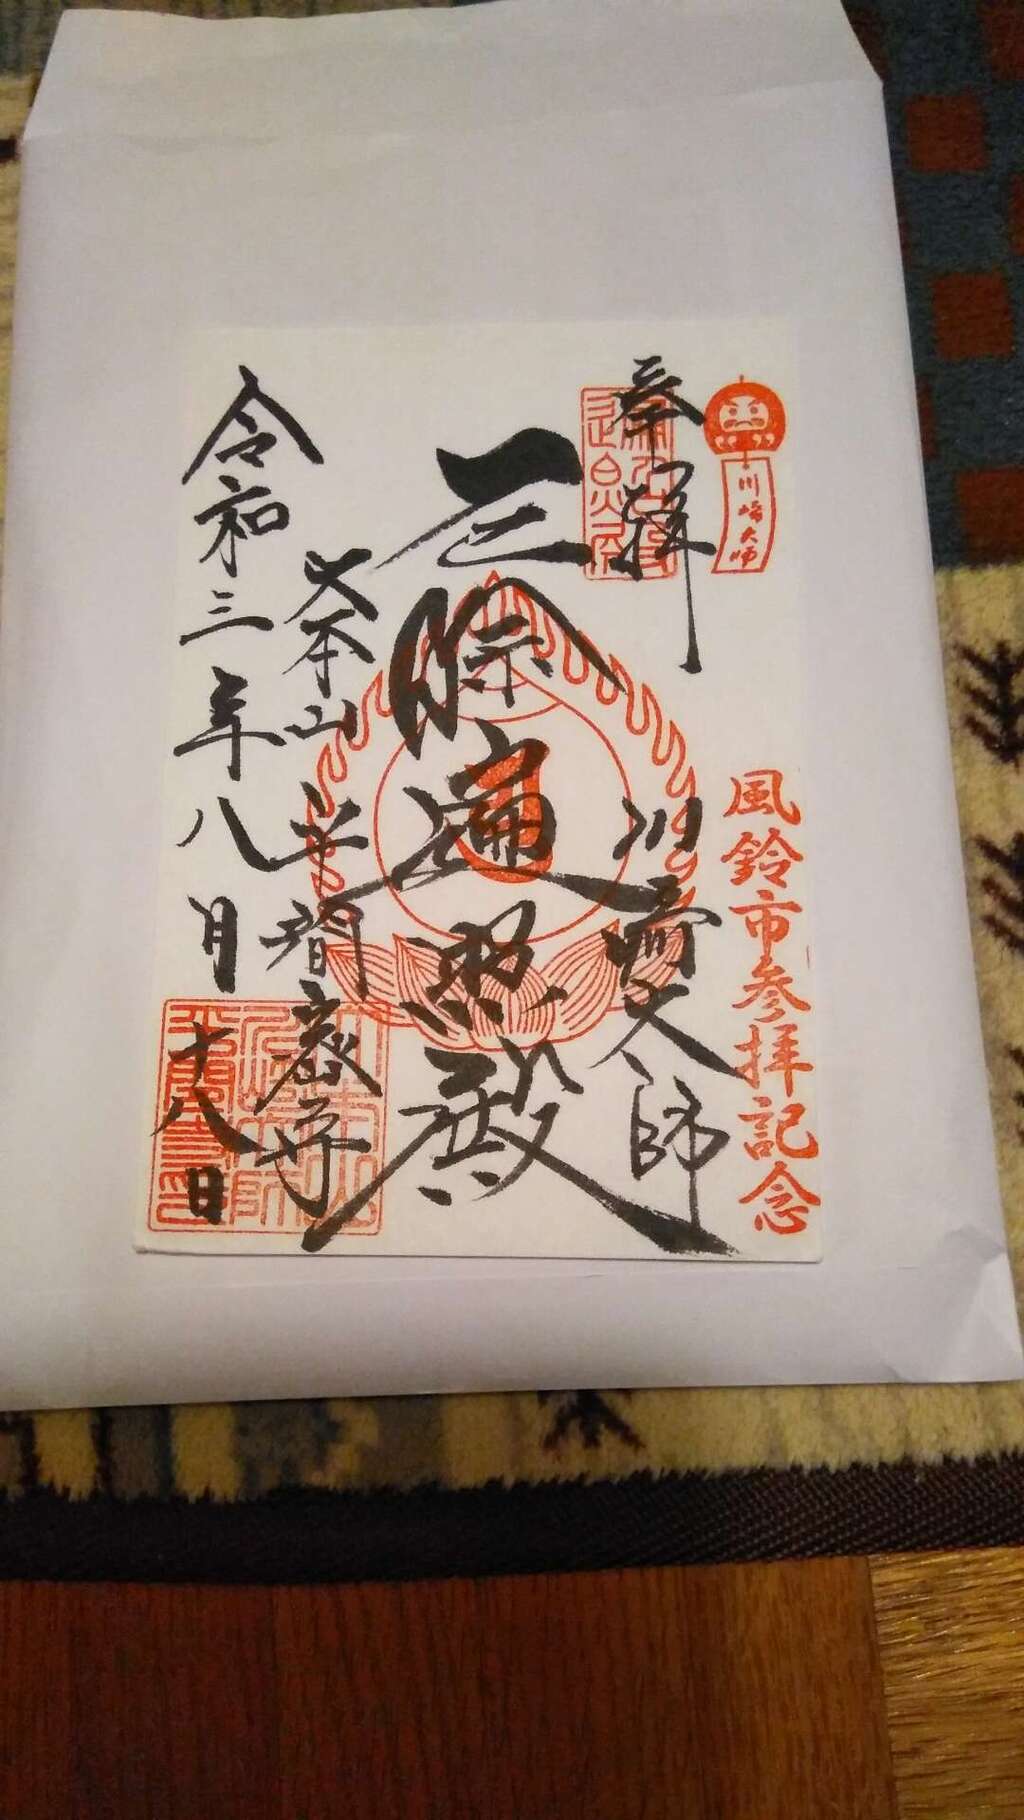 川崎大師
風鈴市参拝記念
奉拝
川嵜大師
厄除遍照殿
大本山 平間密寺
令和三年八月十八日